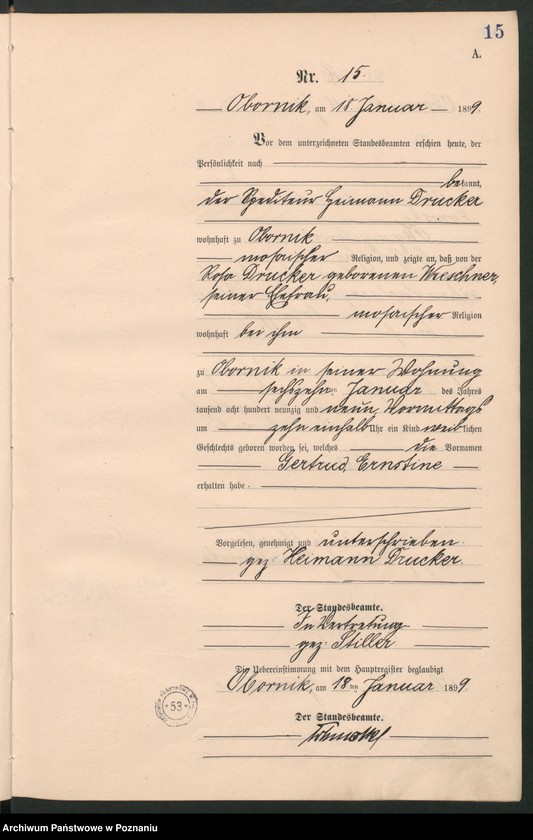 15
A.
Nr. 15.
Obornik, am 18 Januar 1899.
Vor dem unterzeichneten Standesbeamten erschien heute, der
Persönlichkeit nach
bekannt,
der Spediteur Heimann Drucker
wohnhaft zu Obornik
mosaischer Religion, und zeigte an, daß von der
Rosa Drucker geborenen Wreschner,
seiner Ehefrau,
mosaischer Religion
wohnhaft bei ihm
zu Obornik in seiner Wohnung
am sechszehnten Januar des Jahres
tausend acht hundert neunzig und neun, Vormittags
um zehn einhalb Uhr ein Kind weiblichen
Geschlechts geboren worden sei, welches die Vornamen
Gertrud Ernstine
erhalten habe.
Vorgelesen, genehmigt und unterschrieben.
gez. Heimann Drucker.
Der Standesbeamte.
In Vertretung
gez. Stiller.
Die Uebereinstimmung mit dem Hauptregister beglaubigt
Obornik, am 18ten Januar 1899.
Der Standesbeamte.
53
Archiwum Państwowe w Poznaniu